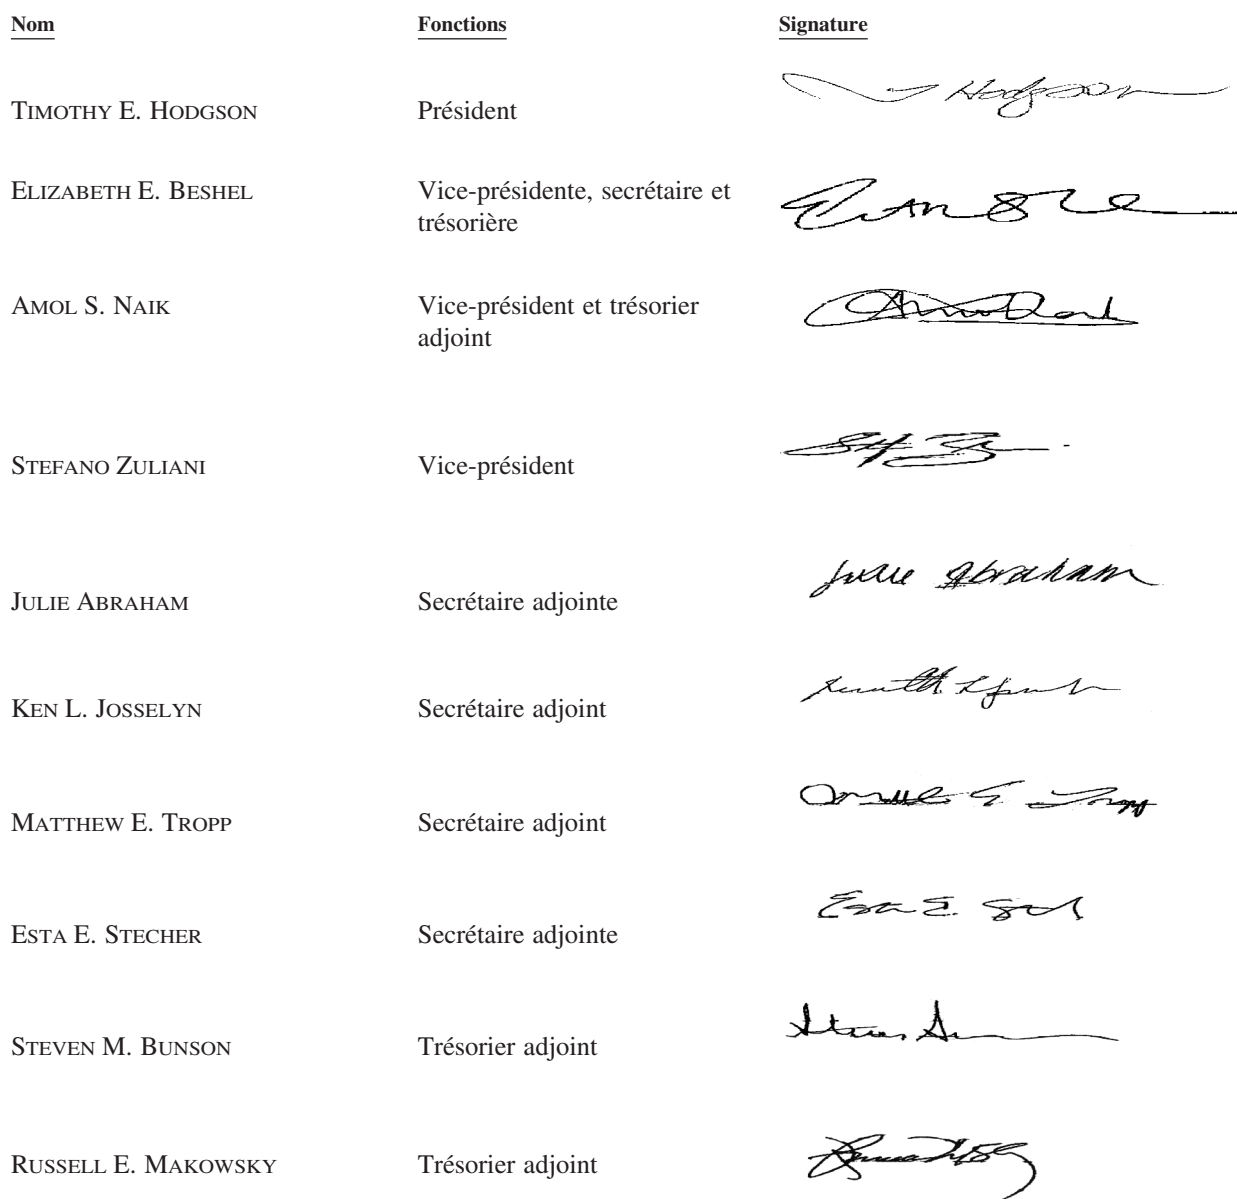 Nom Fonctions Signature
TIMOTHY E. HODGSON Président Hodgson
ELIZABETH E. BESHEL Vice-présidente, secrétaire et
trésorière
AMOL S. NAIK Vice-président et trésorier
adjoint
STEFANO ZULIANI Vice-président
JULIE ABRAHAM Secrétaire adjointe Julie Abraham
KEN L. JOSSELYN Secrétaire adjoint
MATTHEW E. TROPP Secrétaire adjoint
ESTA E. STECHER Secrétaire adjointe Esta E.
STEVEN M. BUNSON Trésorier adjoint
RUSSELL E. MAKOWSKY Trésorier adjoint